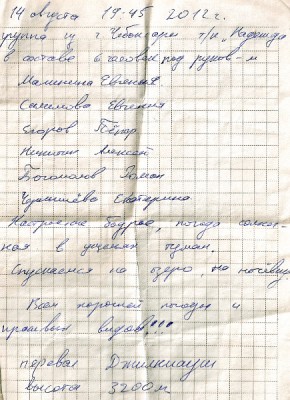 14 августа 19:45 2012г.
группа из г. Чебоксары т/к "Надежда
в составе 6 человек под руков-м
Малинина Евгения.
Евгения
Егоров Пётр
Никитин Алексей
Богомолов Роман
Екатерина
Настроение бодрое, погода солнеч-
ная в ущельях туман.
Спускаемся на озеро, на ночёвку.
Всем хорошей погоды и
красивых видов!!!
перевал
высота 3200м